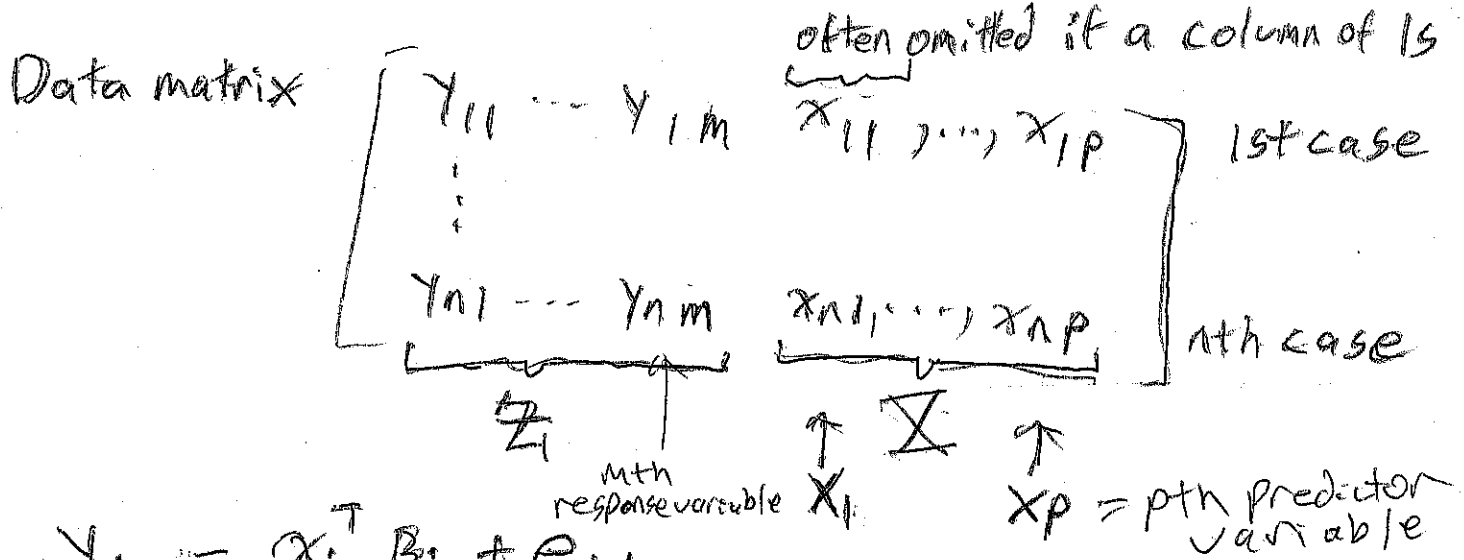 often omitted if a column of 1s
Data matrix
Y11 ... Y1m x11, ..., x1p 1st case
⋮
Yn1 ... Ynm xn1, ..., xnp nth case
Z X
mth
response variable X1 Xp = pth predictor
variable